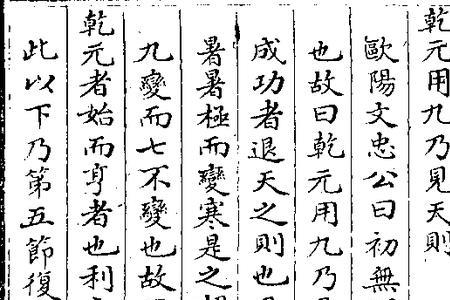 乾元用九乃見天則
歐陽文忠公曰初無
也故曰乾元用九乃
成功者退天之則也
暑暑極而變寒是之
九變而七不變也故
乾元者始而亨者也利
此以下乃第五節復